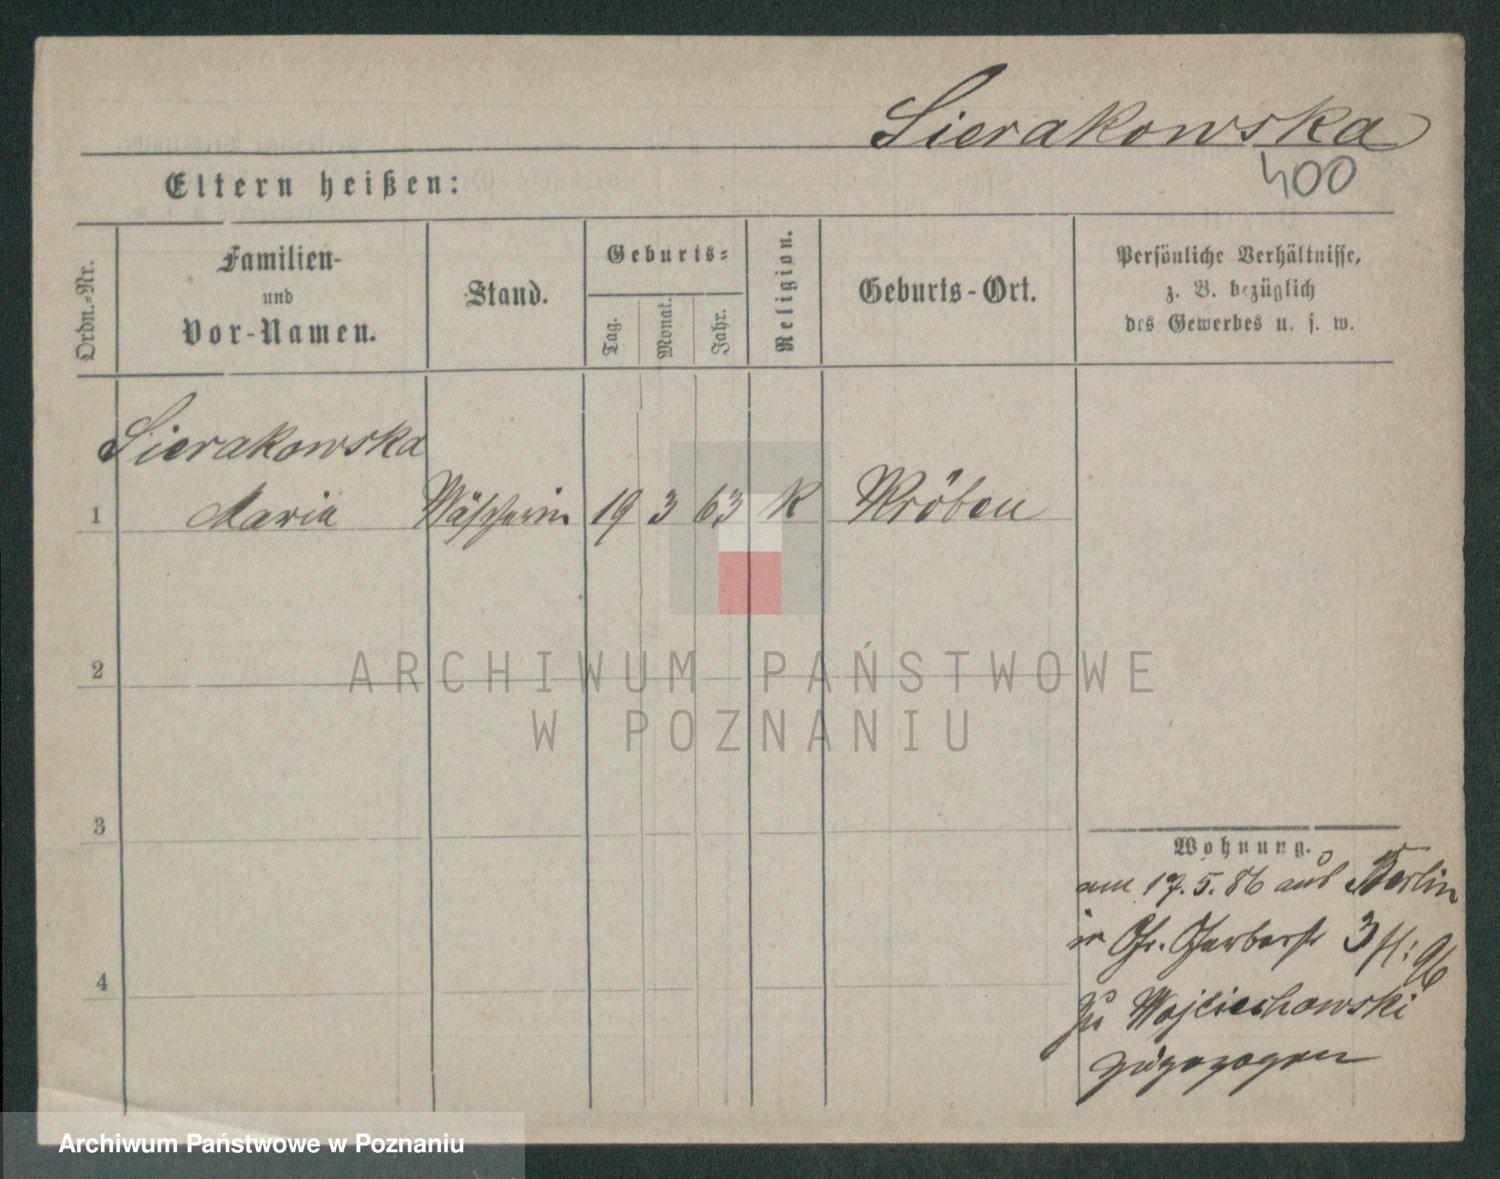 Sierakowska
400
Eltern heißen:
Ordn.=Nr.
Familien-
und
Vor-Namen.
Stand.
Geburts=
Tag.
Monat.
Jahr.
Religion.
Geburts-Ort.
Persönliche Verhältnisse,
z. B. bezüglich
des Gewerbes u. s. w.
Sierakowska
1 Maria Wäscherin 19 3 63 K Kröben
2
3
4
Wohnung.
am 17.5.86 aus Berlin
in Gr. Gerberstr 3
zu Wojciechowski
zugezogen
ARCHIWUM PAŃSTWOWE
W POZNANIU
Archiwum Państwowe w Poznaniu